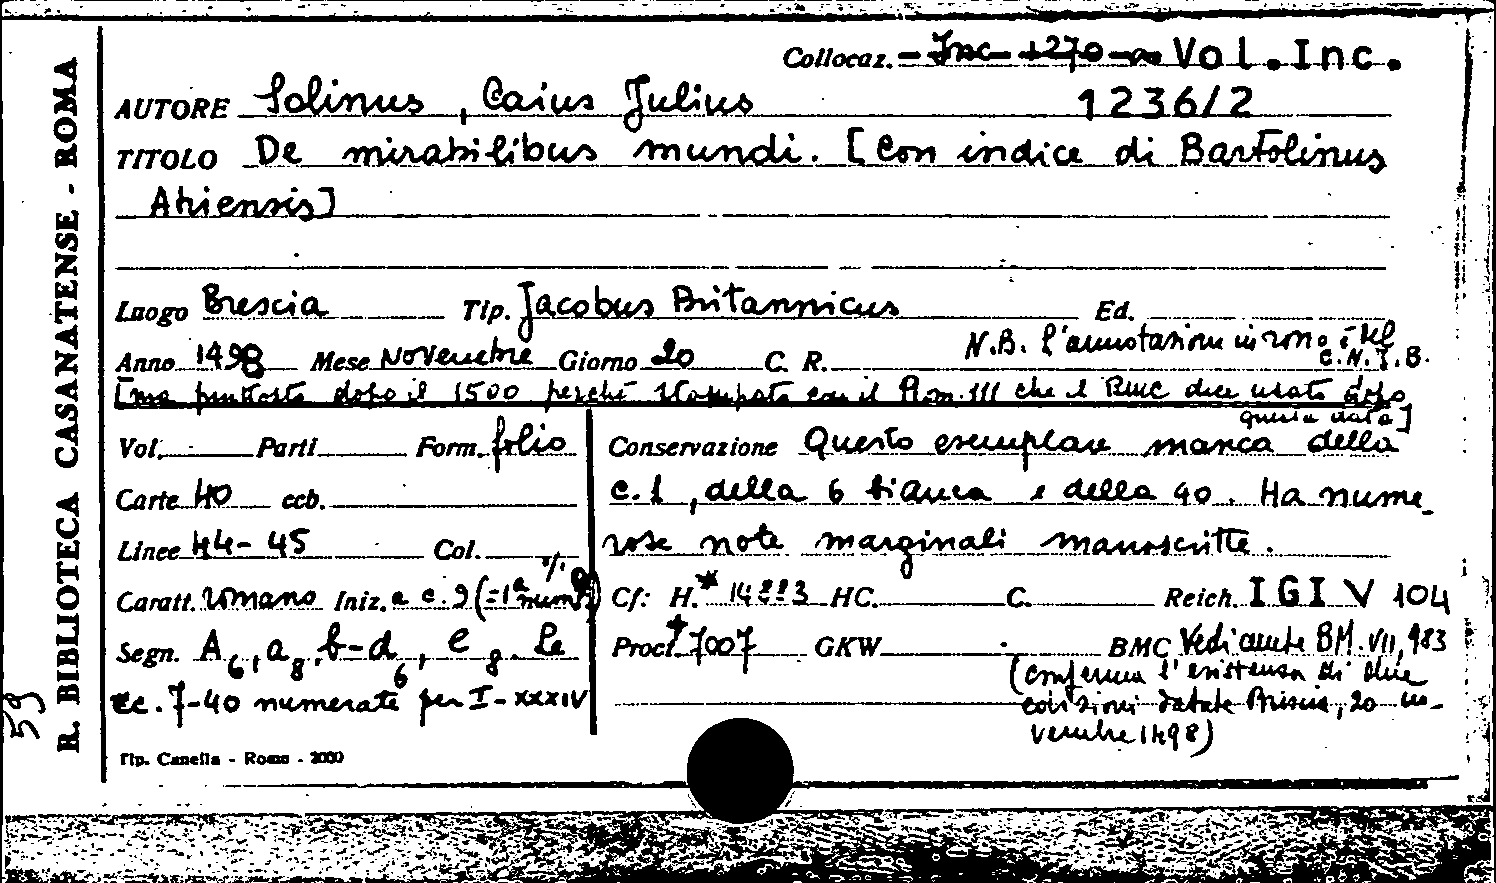 R. BIBLIOTECA CASANATENSE - ROMA
59
Collocaz. - Inc 1270 - Vol. Inc.
AUTORE Solinus, Caius Julius 1236/2
TITOLO De mirabilibus mundi. [Con indice di Bartolinus
Atriensis]
Luogo Brescia Tip. Jacobus Britannicus Ed.
N.B. l'annotazione in rosso è del
Anno 1498 Mese Novembre Giorno 20 C. R. C.N.I.B.
[ma piuttosto dopo il 1500 perché stampato con il Rom. 111 che il BMC dice usato dopo
questa data]
Vol. Parti Form. folio Conservazione Questo esemplare manca della
Carte 40 ccb. c. 1, della 6 bianca e della 40. Ha nume-
Linee 44-45 Col. rose note marginali manoscritte.
Caratt. romano Iniz. a c. 9 (=1ª num.) Cf: H.* 14883 HC. C. Reich. IGI V 104
Segn. A6, a8, b-d6, e8. Le Proct. 7007 GKW BMC Vedi anche BM. VII, 983
cc. 7-40 numerate per I-XXXIV (conferma l'esistenza di due
edizioni datate Brescia, 20 no-
vembre 1498)
Tip. Canella - Roma - 2000